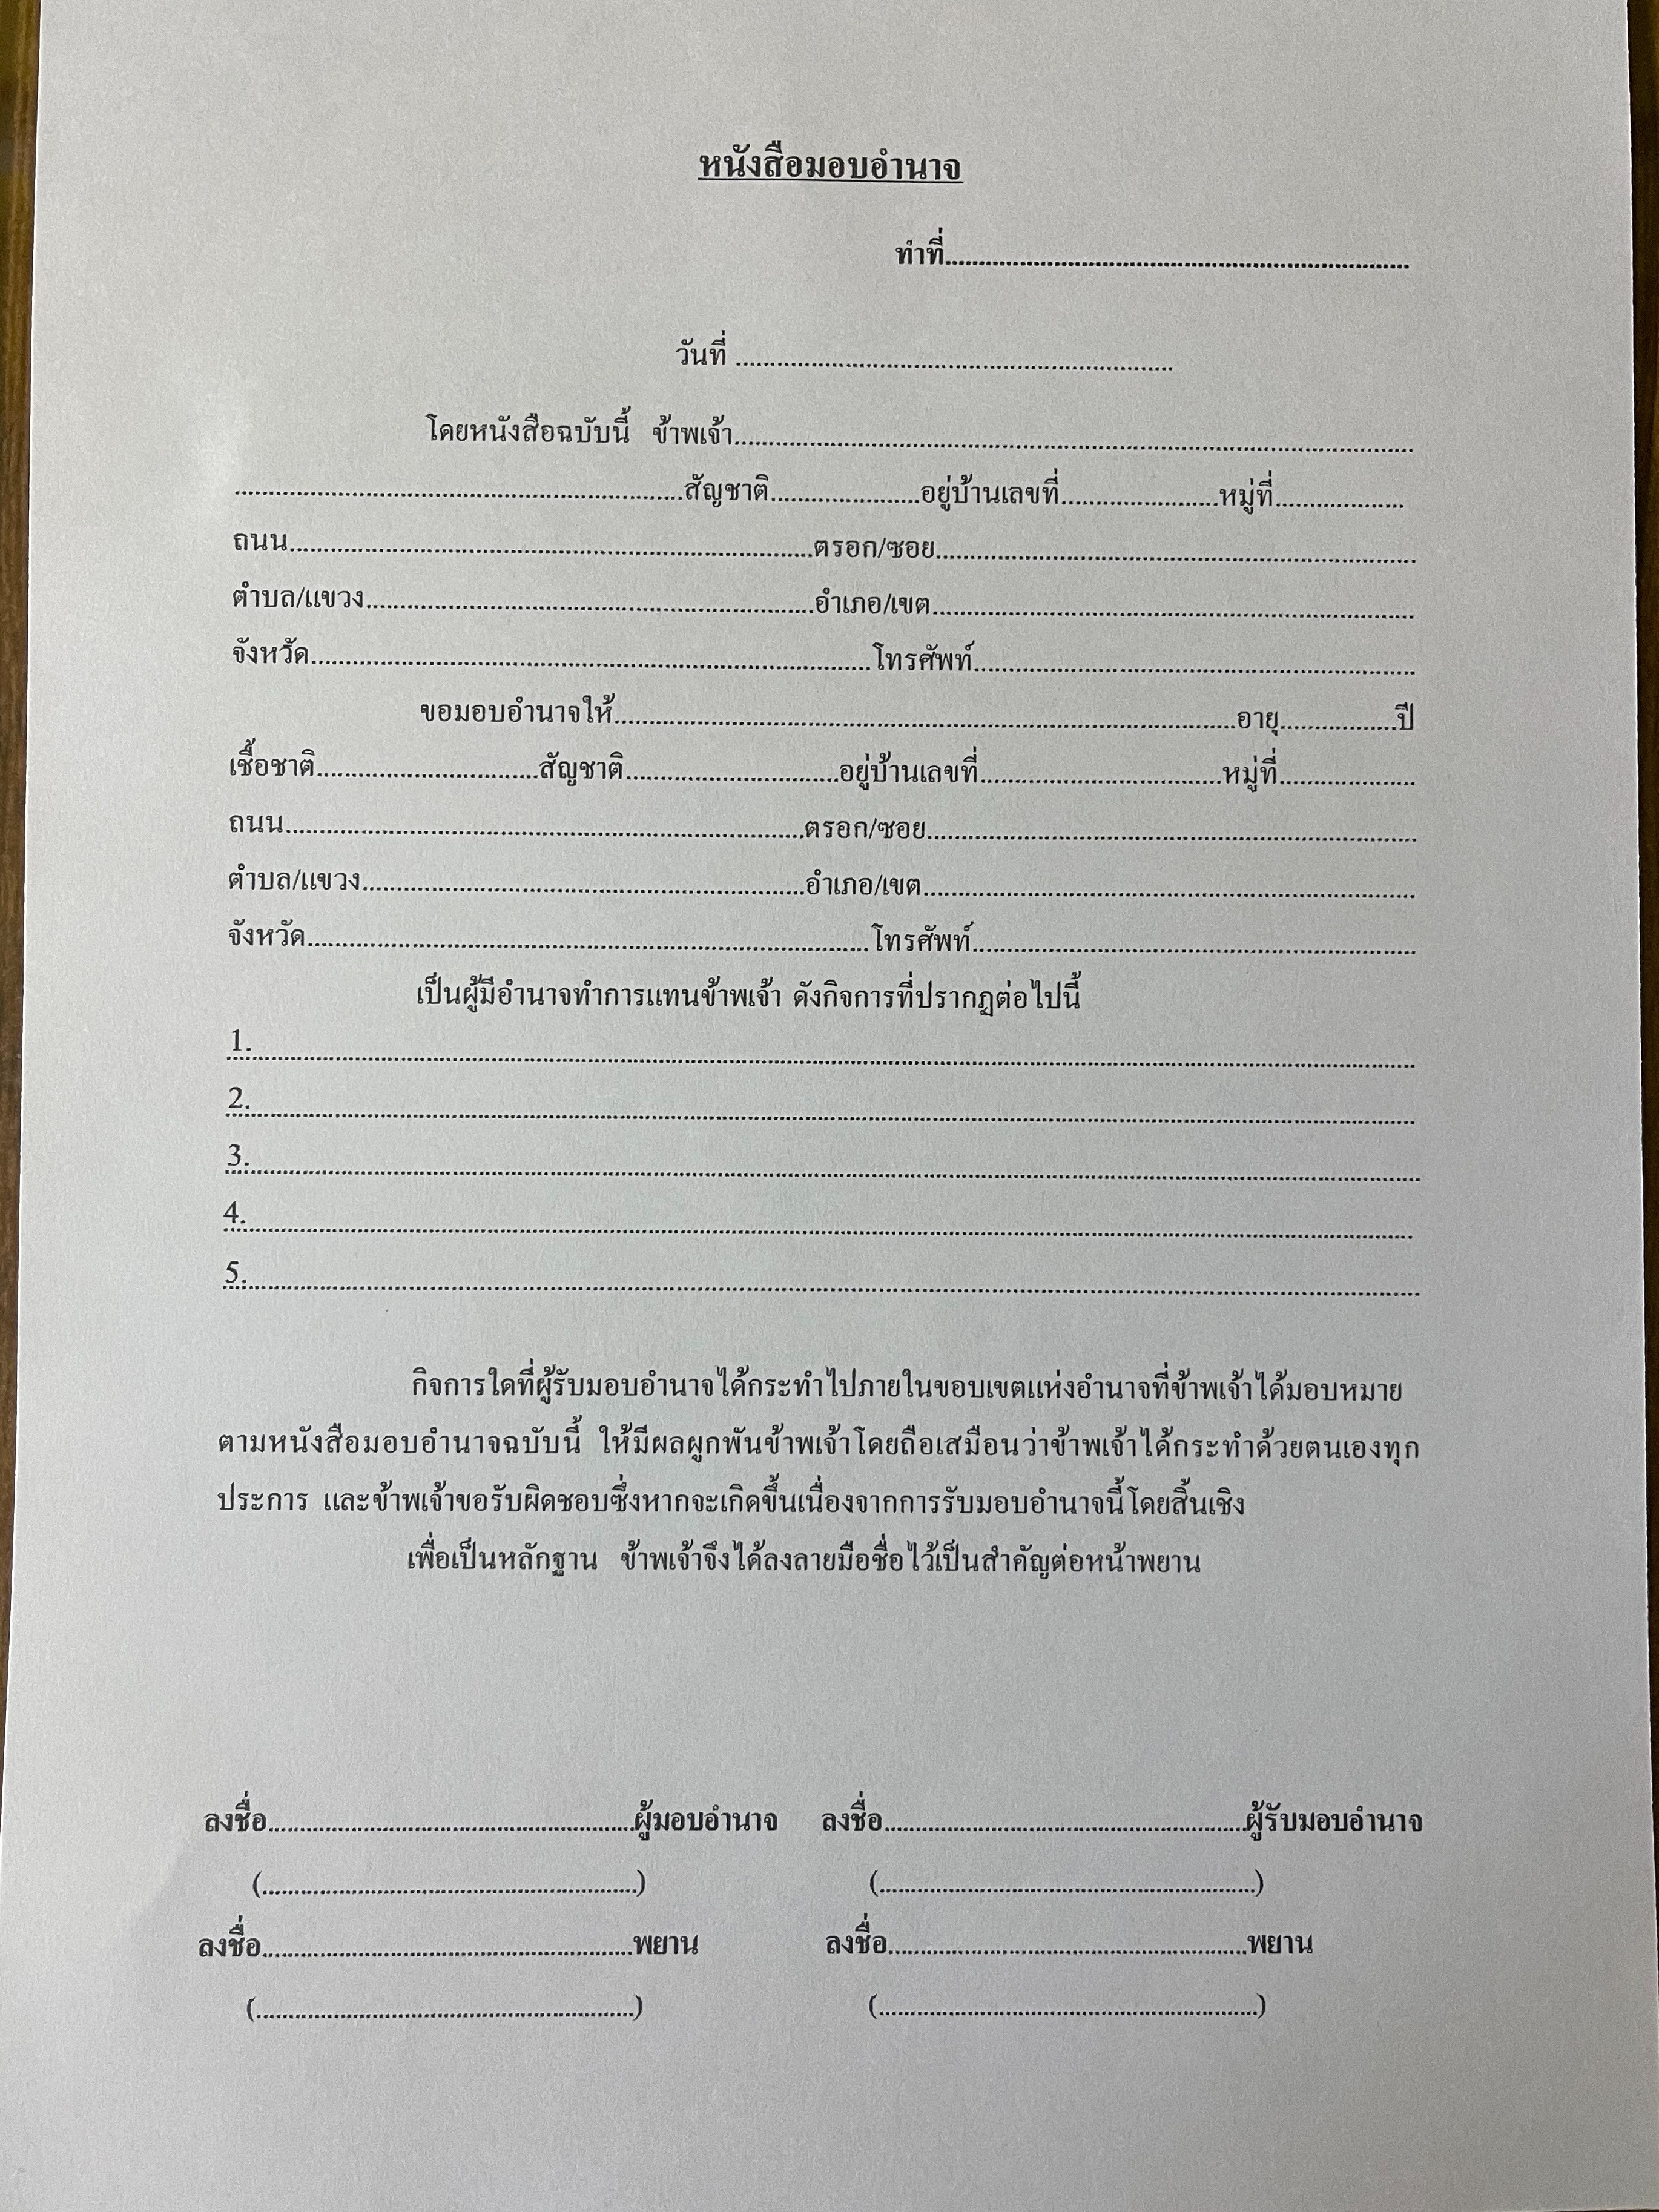 หนังสือมอบอำนาจ
ทำที่......................................................................
วันที่ ................................................................
โดยหนังสือฉบับนี้ ข้าพเจ้า....................................................................................................
..................................................................สัญชาติ......................อยู่บ้านเลขที่.......................หมู่ที่...................
ถนน.............................................................................ตรอก/ซอย.......................................................................
ตำบล/แขวง..................................................................อำเภอ/เขต.......................................................................
จังหวัด..................................................................................โทรศัพท์.................................................................
ขอมอบอำนาจให้...........................................................................................อายุ.................ปี
เชื้อชาติ.................................สัญชาติ...............................อยู่บ้านเลขที่....................................หมู่ที่....................
ถนน............................................................................ตรอก/ซอย........................................................................
ตำบล/แขวง.................................................................อำเภอ/เขต........................................................................
จังหวัด...................................................................................โทรศัพท์.................................................................
เป็นผู้มีอำนาจทำการแทนข้าพเจ้า ดังกิจการที่ปรากฏต่อไปนี้
1...............................................................................................................................................................................
2...............................................................................................................................................................................
3...............................................................................................................................................................................
4...............................................................................................................................................................................
5...............................................................................................................................................................................
กิจการใดที่ผู้รับมอบอำนาจได้กระทำไปภายในขอบเขตแห่งอำนาจที่ข้าพเจ้าได้มอบหมาย
ตามหนังสือมอบอำนาจฉบับนี้ ให้มีผลผูกพันข้าพเจ้าโดยถือเสมือนว่าข้าพเจ้าได้กระทำด้วยตนเองทุก
ประการ และข้าพเจ้าขอรับผิดชอบซึ่งหากจะเกิดขึ้นเนื่องจากการรับมอบอำนาจนี้โดยสิ้นเชิง
เพื่อเป็นหลักฐาน ข้าพเจ้าจึงได้ลงลายมือชื่อไว้เป็นสำคัญต่อหน้าพยาน
ลงชื่อ......................................................ผู้มอบอำนาจ ลงชื่อ......................................................ผู้รับมอบอำนาจ
(.......................................................) (.......................................................)
ลงชื่อ......................................................พยาน ลงชื่อ......................................................พยาน
(.......................................................) (.......................................................)